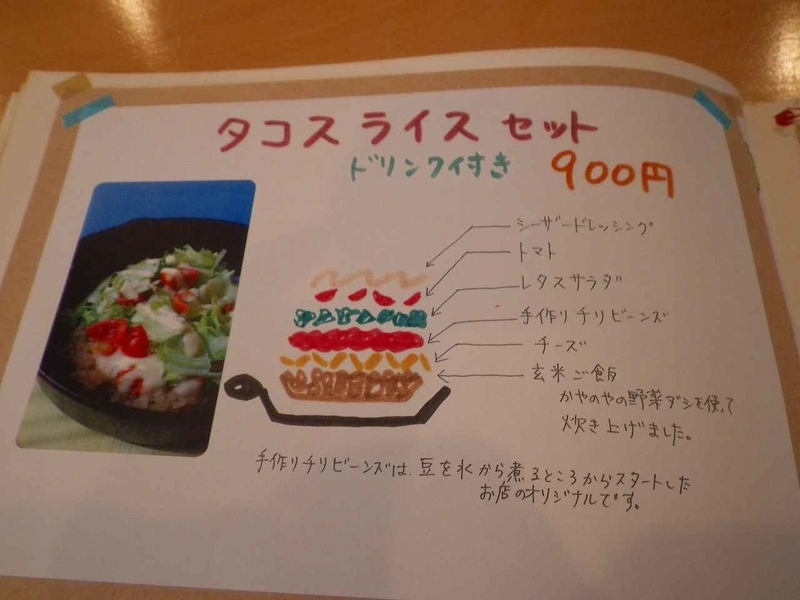 タコス ライス セット
ドリンク付き 900円
シーザードレッシング
トマト
レタスサラダ
手作りチリビーンズ
チーズ
玄米ご飯
かやのやの野菜ダシを使って
炊き上げました。
手作りチリビーンズは、豆を水から煮るところからスタートした
お店のオリジナルです。